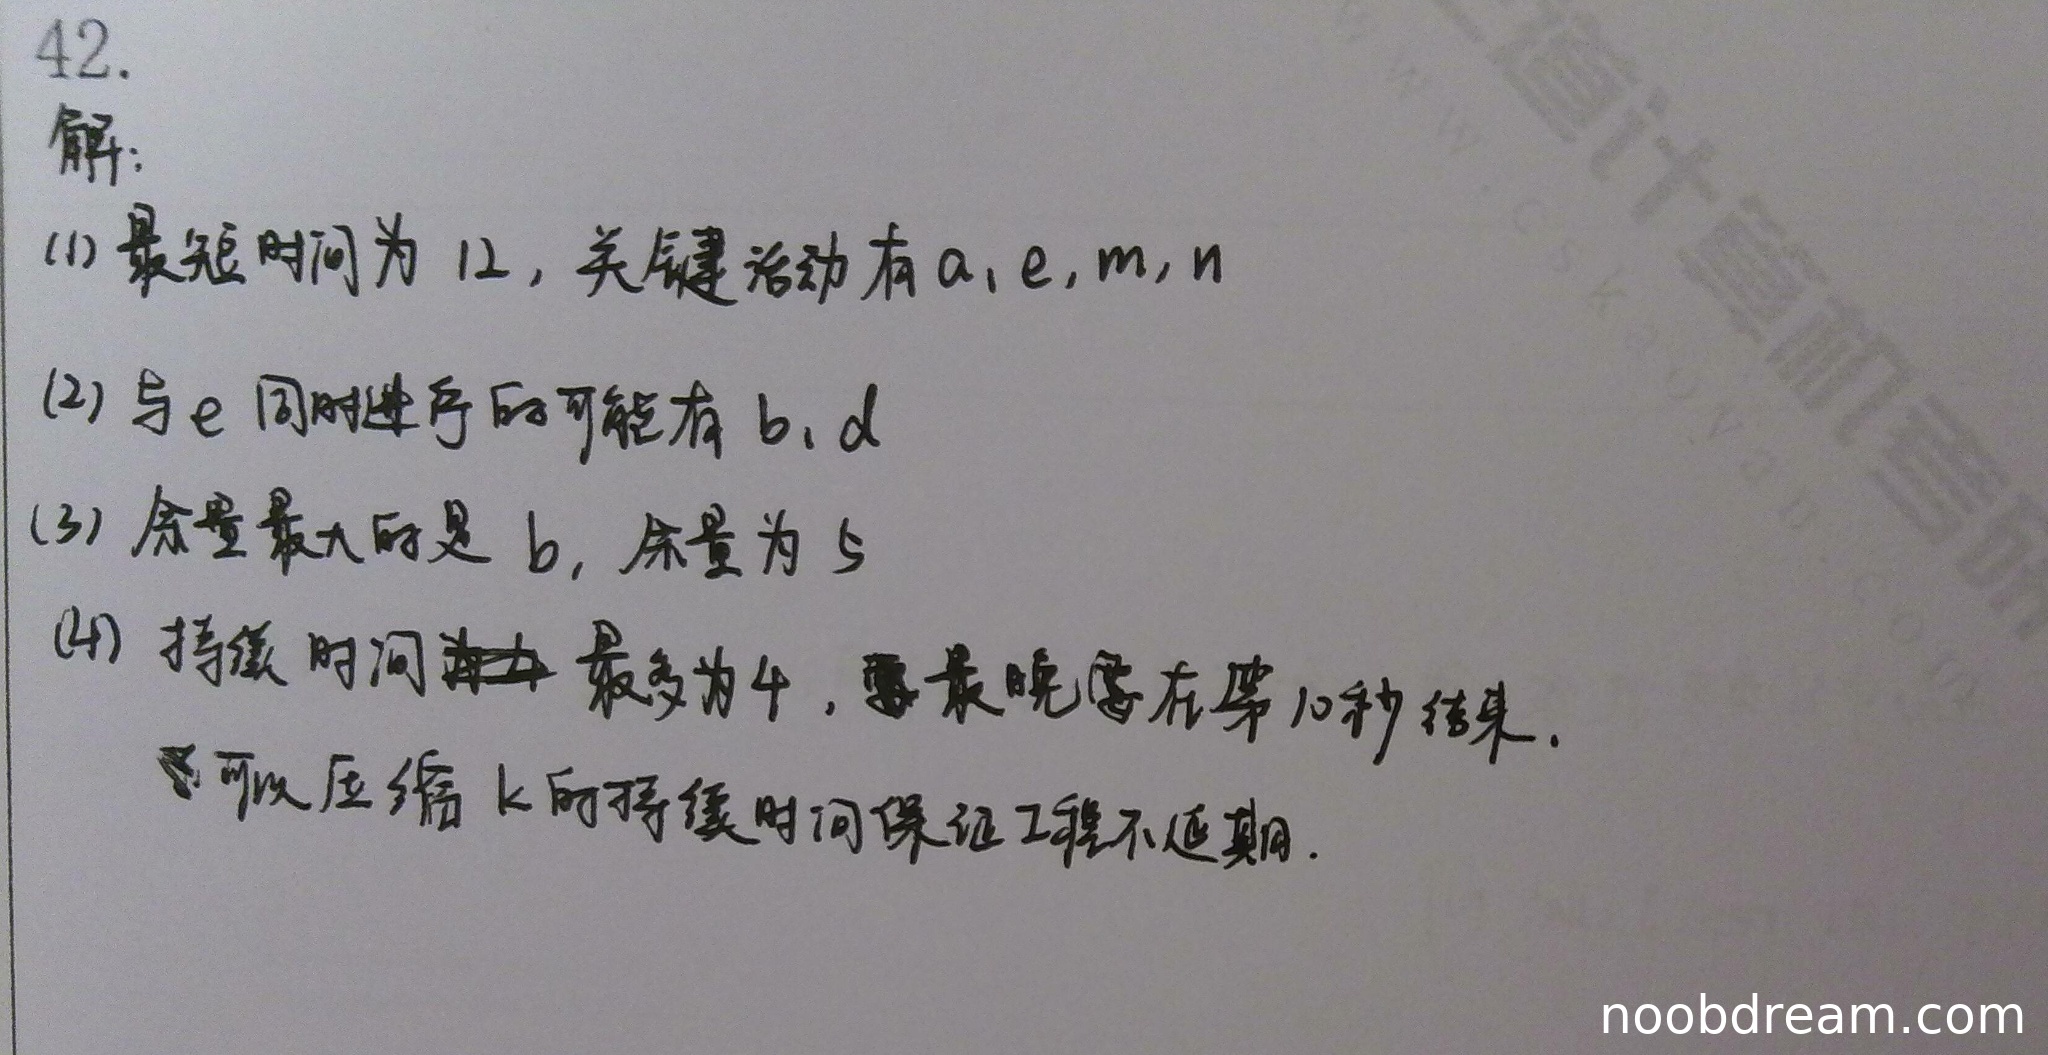 42.
解:
(1) 最短时间为 12, 关键活动有 a, e, m, n
(2) 与 e 同时进行的可能有 b, d
(3) 余量最大的是 b, 余量为 5
(4) 持续时间 最多为 4, 最晚需在第10秒结束.
可以压缩 k 的持续时间保证工程不延期.
道计算机考研
www.cskaoyan.com
noobdream.com